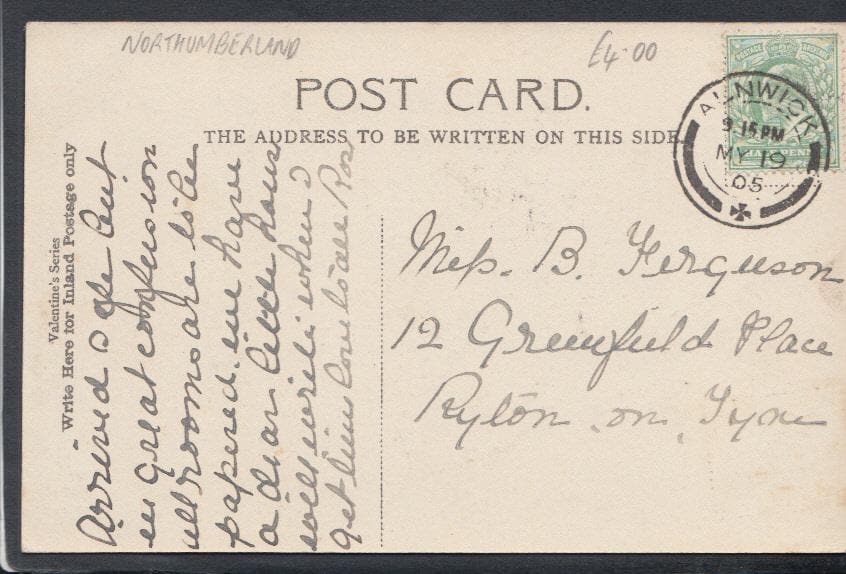 NORTHUMBERLAND
£4.00
POST CARD.
THE ADDRESS TO BE WRITTEN ON THIS SIDE.
ALNWICK
9.15PM
MY 19
05
POSTAGE
Valentine's Series
Write Here for Inland Postage only
Arrived safe but
in great confusion
all rooms are to be
papered. we have
a dear little house
will write when I
get time love to all
Miss. B. Ferguson
12 Greenfield Place
Ryton. on. Tyne